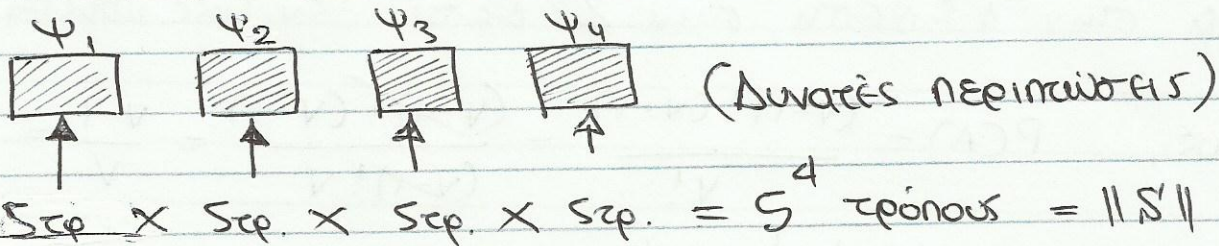 Ψ₁ Ψ₂ Ψ₃ Ψ₄
(Δυνατές περιπτώσεις)
5τρ × 5τρ. × 5τρ. × 5τρ. = 5⁴ τρόπους = ||S||